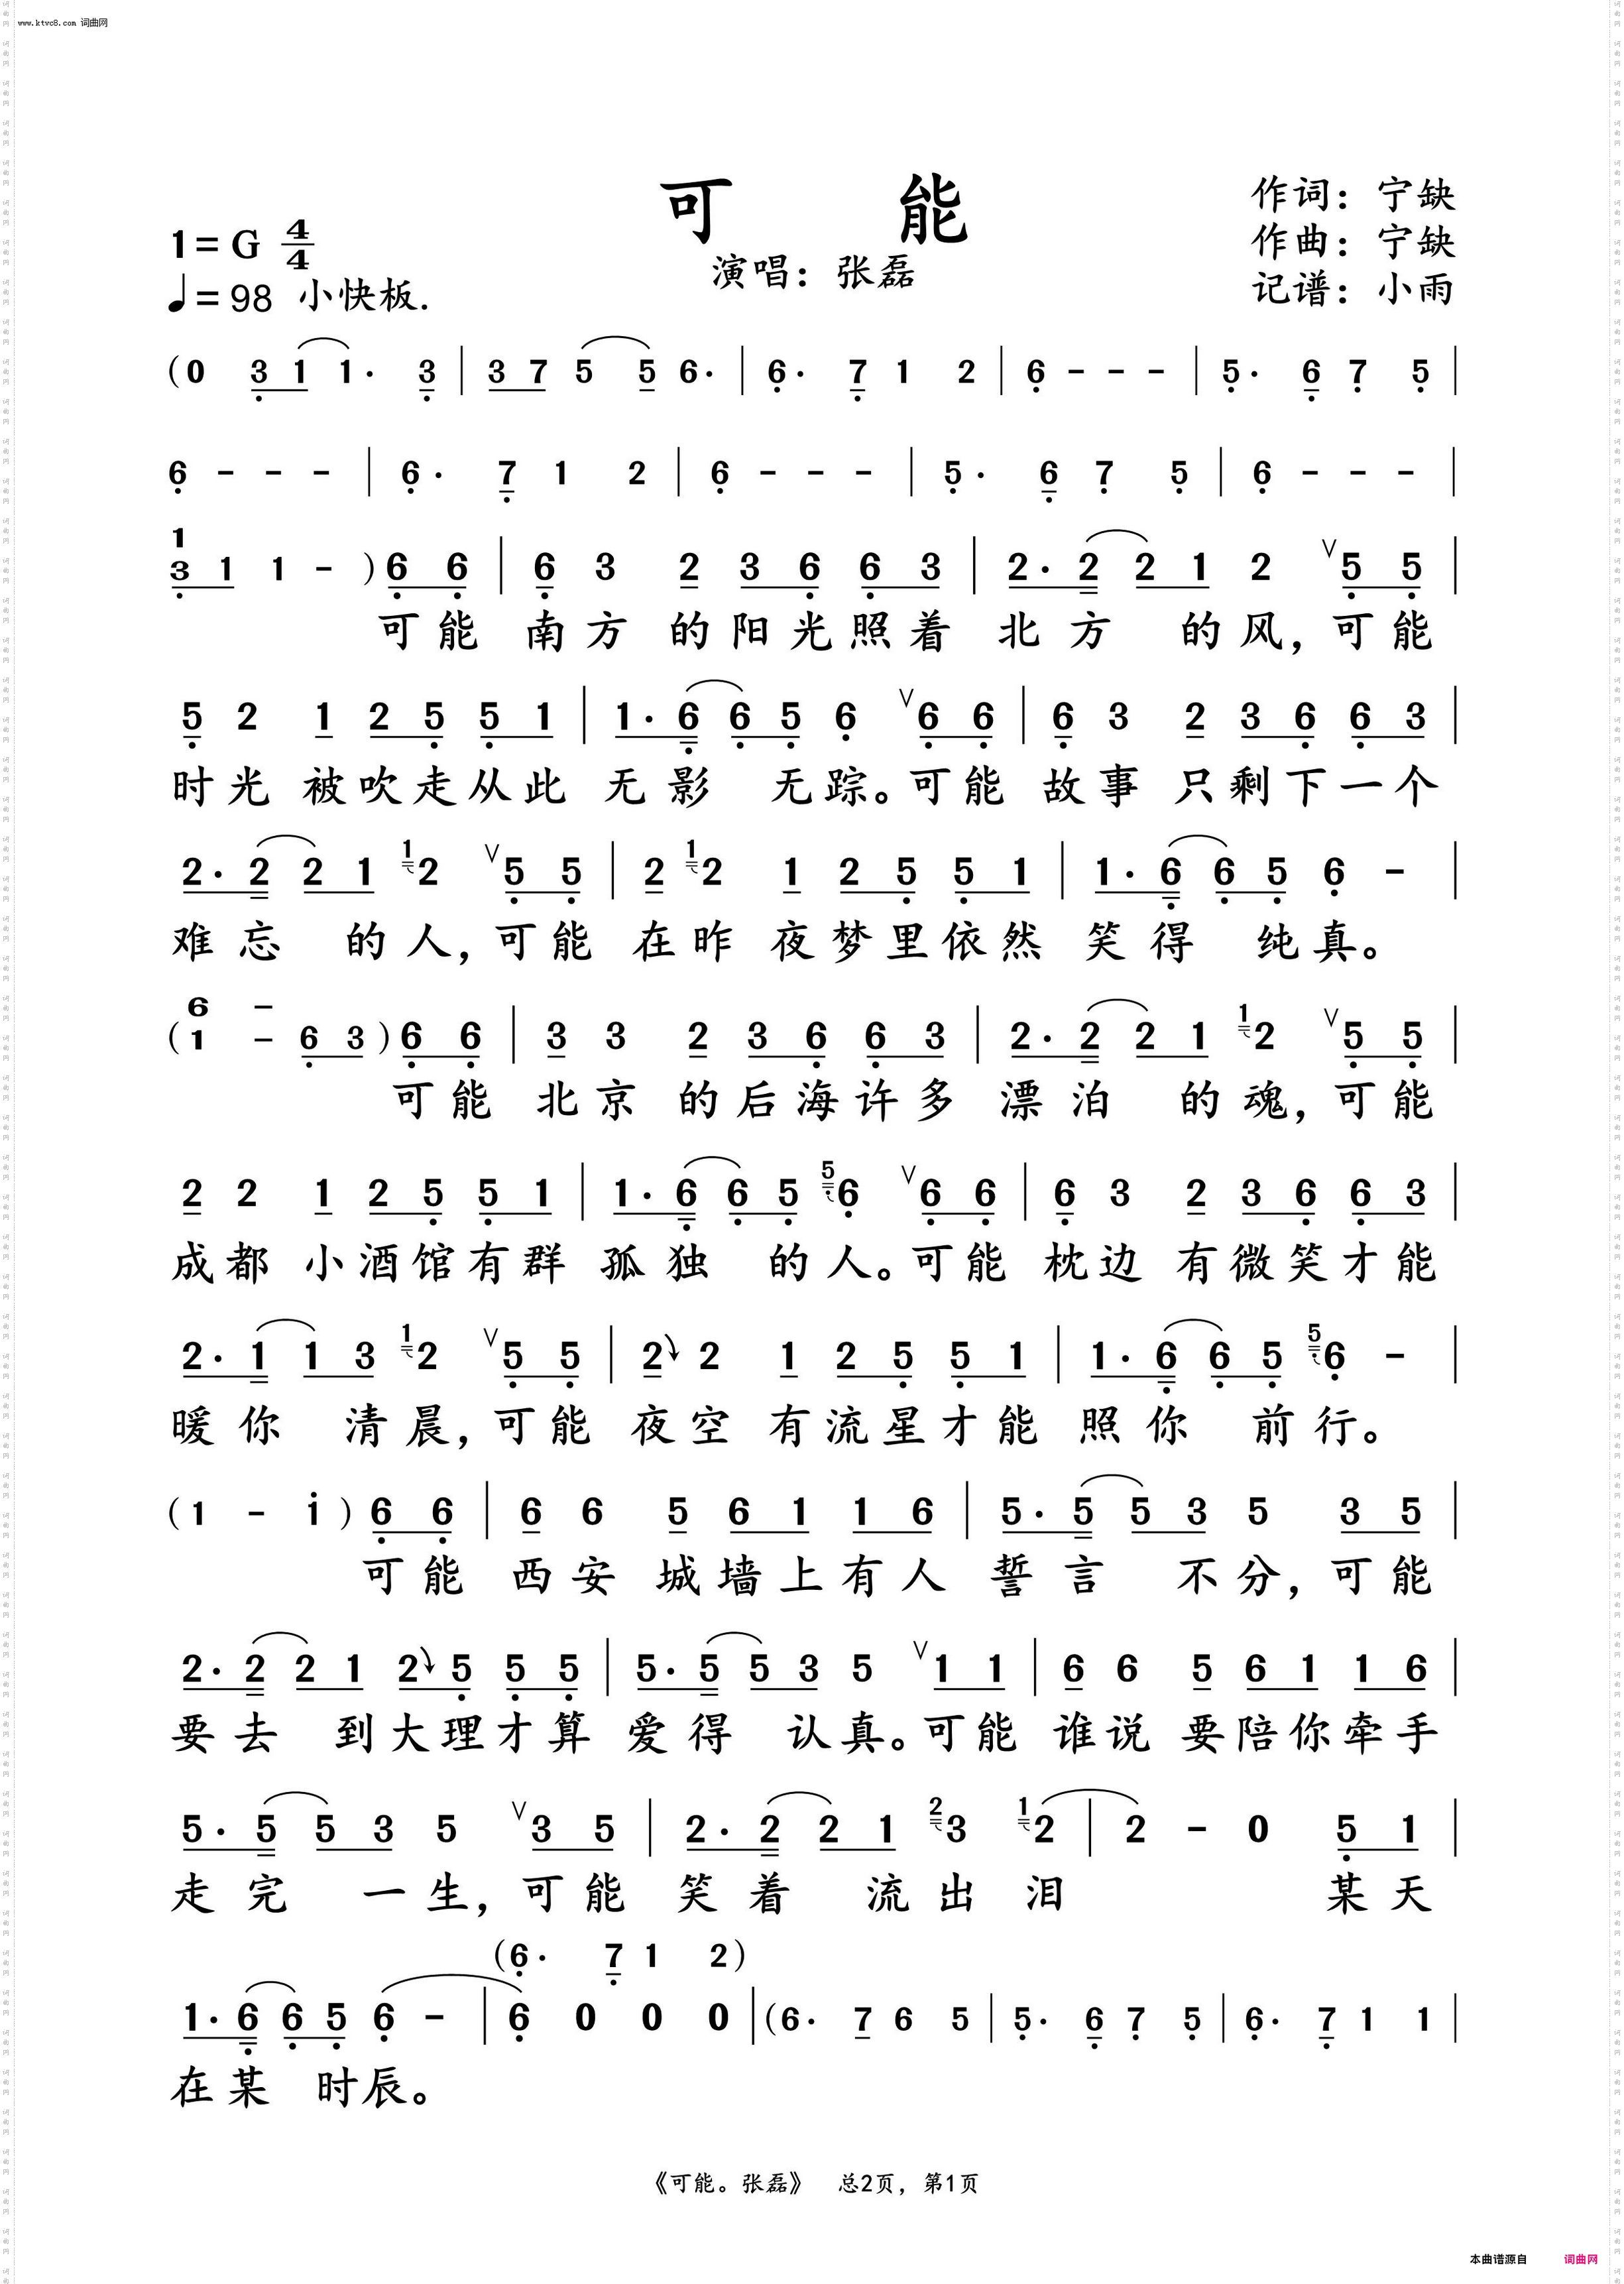 www.ktvc8.com 词曲网
可 能
作词：宁缺
1=G 4/4
作曲：宁缺
演唱：张磊
♩=98 小快板.
记谱：小雨
(0 3 1 1· 3 | 3 7 5 5 6· | 6· 7 1 2 | 6 - - - | 5· 6 7 5 |
6 - - - | 6· 7 1 2 | 6 - - - | 5· 6 7 5 | 6 - - - |
1
3 1 1 - ) 6 6 | 6 3 2 3 6 6 3 | 2· 2 2 1 2 ∨ 5 5 |
可能 南方 的阳光照着 北方 的风，可能
5 2 1 2 5 5 1 | 1· 6 6 5 6 ∨ 6 6 | 6 3 2 3 6 6 3 |
时光 被吹走从此 无影 无踪。可能 故事 只剩下一个
2· 2 2 1 1 2 ∨ 5 5 | 2 1 2 1 2 5 5 1 | 1· 6 6 5 6 - |
难忘 的人，可能 在昨 夜梦里依然 笑得 纯真。
6 -
(1 - 6 3 ) 6 6 | 3 3 2 3 6 6 3 | 2· 2 2 1 1 2 ∨ 5 5 |
可能 北京 的后海许多 漂泊 的魂，可能
2 2 1 2 5 5 1 | 1· 6 6 5 5 6 ∨ 6 6 | 6 3 2 3 6 6 3 |
成都 小酒馆有群 孤独 的人。可能 枕边 有微笑才能
2· 1 1 3 1 2 ∨ 5 5 | 2 2 1 2 5 5 1 | 1· 6 6 5 5 6 - |
暖你 清晨，可能 夜空 有流星才能 照你 前行。
(1 - 1 ) 6 6 | 6 6 5 6 1 1 6 | 5· 5 5 3 5 3 5 |
可能 西安 城墙上有人 誓言 不分，可能
2· 2 2 1 2 5 5 5 | 5· 5 5 3 5 ∨ 1 1 | 6 6 5 6 1 1 6 |
要去 到大理才算 爱得 认真。可能 谁说 要陪你牵手
5· 5 5 3 5 ∨ 3 5 | 2· 2 2 1 2 3 1 2 | 2 - 0 5 1 |
走完 一生，可能 笑着 流出泪 某天
(6· 7 1 2)
1· 6 6 5 6 - | 6 0 0 0 | (6· 7 6 5 | 5· 6 7 5 | 6· 7 1 1 |
在某 时辰。
《可能。张磊》 总2页，第1页
本曲谱源自 词曲网